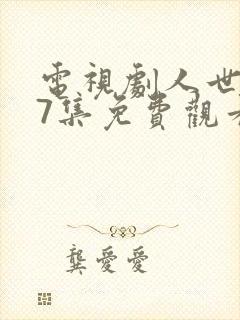 電視劇人世
7集免費觀看
龔愛愛